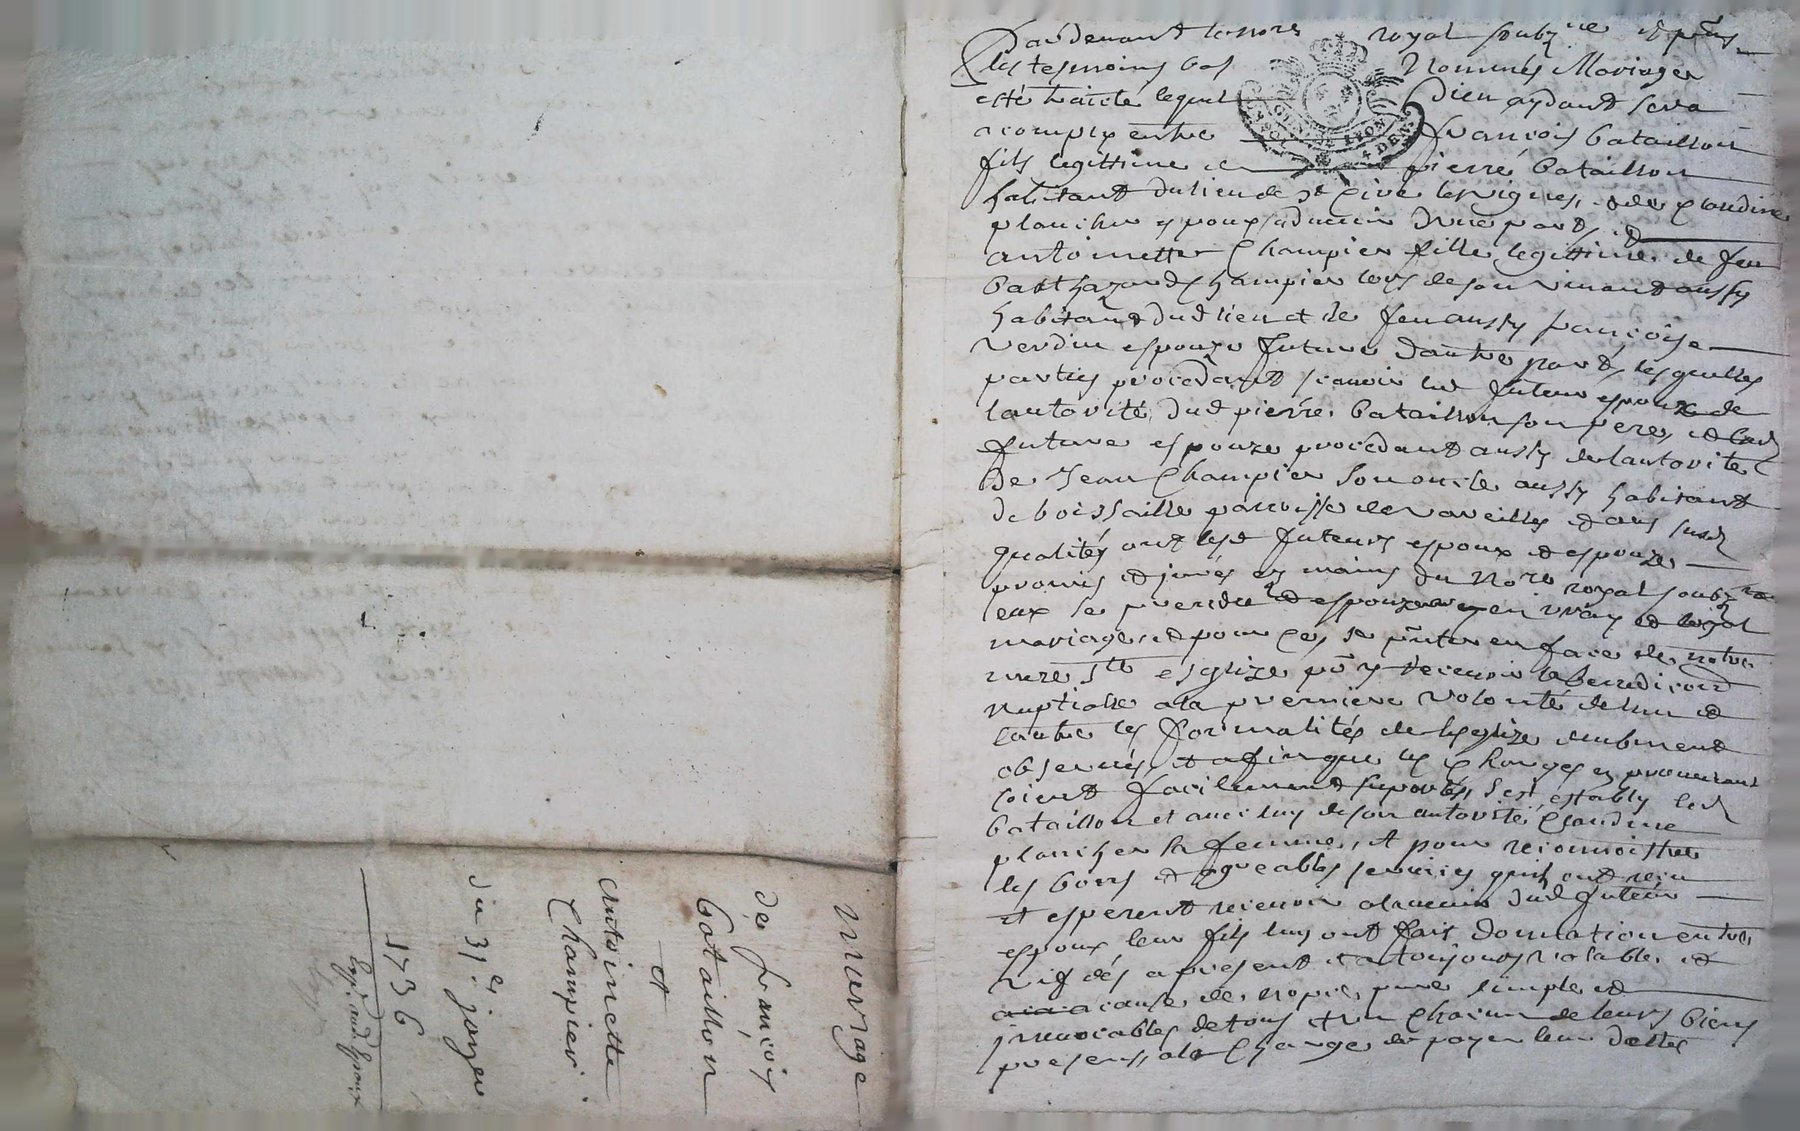 mariage
de francois
Bataillon
et
Antoinette
Champier.
du 31e. janvier
1736
Expd. aud Epoux
Pardevant le nore royal soubzne et pñs
les tesmoins bas nommés Mariage
esté traicté lequel Dieu aydant sera
acomply entre francois bataillon
fils legittime de pierre bataillon
habitant du lieu de st Cire les vignes, et de Claudine
plancher espoux advenir d'une part, et
antoinette Champier fille legittime de feu
balthazard Champier lors de son vivant aussy
habitant dud lieu et de feu aussy francoise
verdier espouze future d'autre part, lesquelles
parties procedant scavoir led futeur espoux de
lautorité dud pierre bataillon son pere, et lad
future espouze procedant aussy de lautorité
de Jean Champier son oncle aussy habitant
de boissaille parroisse de vareilles et aus susd
qualités ont lesd futeurs espoux et espouze
promis et jurés es mains du nore royal soubzne
eux se prendre et espouzer en vray et loyal
mariage, et pour ce, se pñter en face de notre
mere ste esglize pr y recevoir la benediction
nuptialle a la premiere volonté de lun et
lautre les formalités de lesglize deubment
observés, et afin que les charges en provenant
soient facilement suportés, s'est estably led
bataillon et avec luy de son autorité Claudine
plancher sa femme, et pour reconnoistre
les bons et agreables services quils ont receu
et esperent recevoir a ladvenir dud futeur
espoux leur fils luy ont fait donnation entre
vifs dés apresent et a toujours valable et
a cause de nopce pure simple et
irrevocables de tous et un chacun de leurs biens
presens, a la charge de payer leur dettes